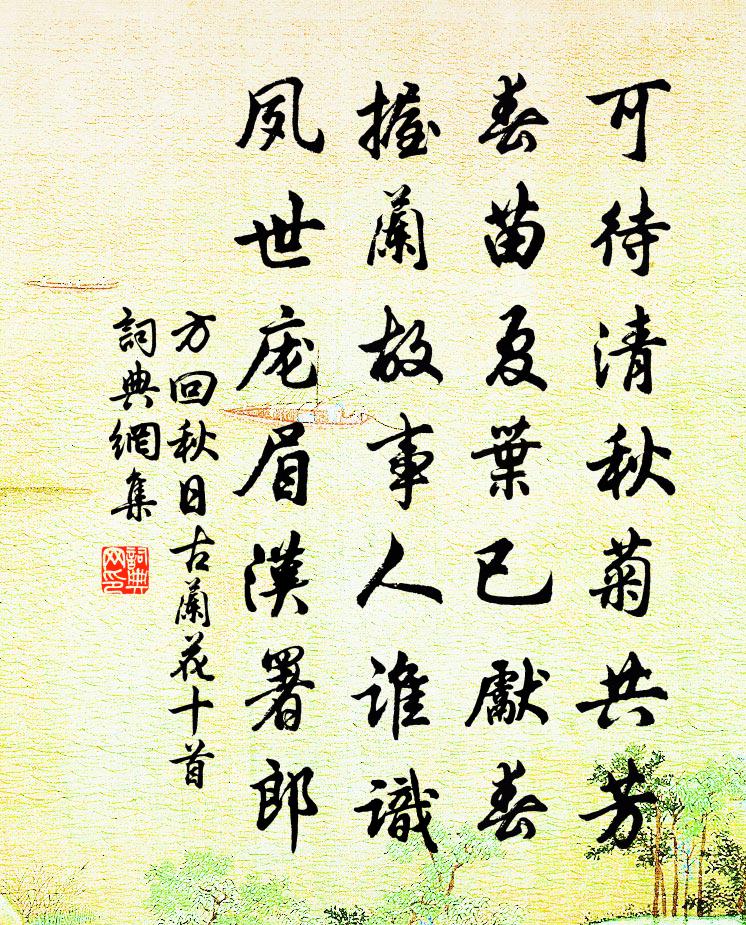 可待清秋菊共芳
春苗夏葉已獻春
握蘭故事人誰識
夙世庞眉漢署郎
方回秋日古蘭花十首
詞典網集
詞典网印